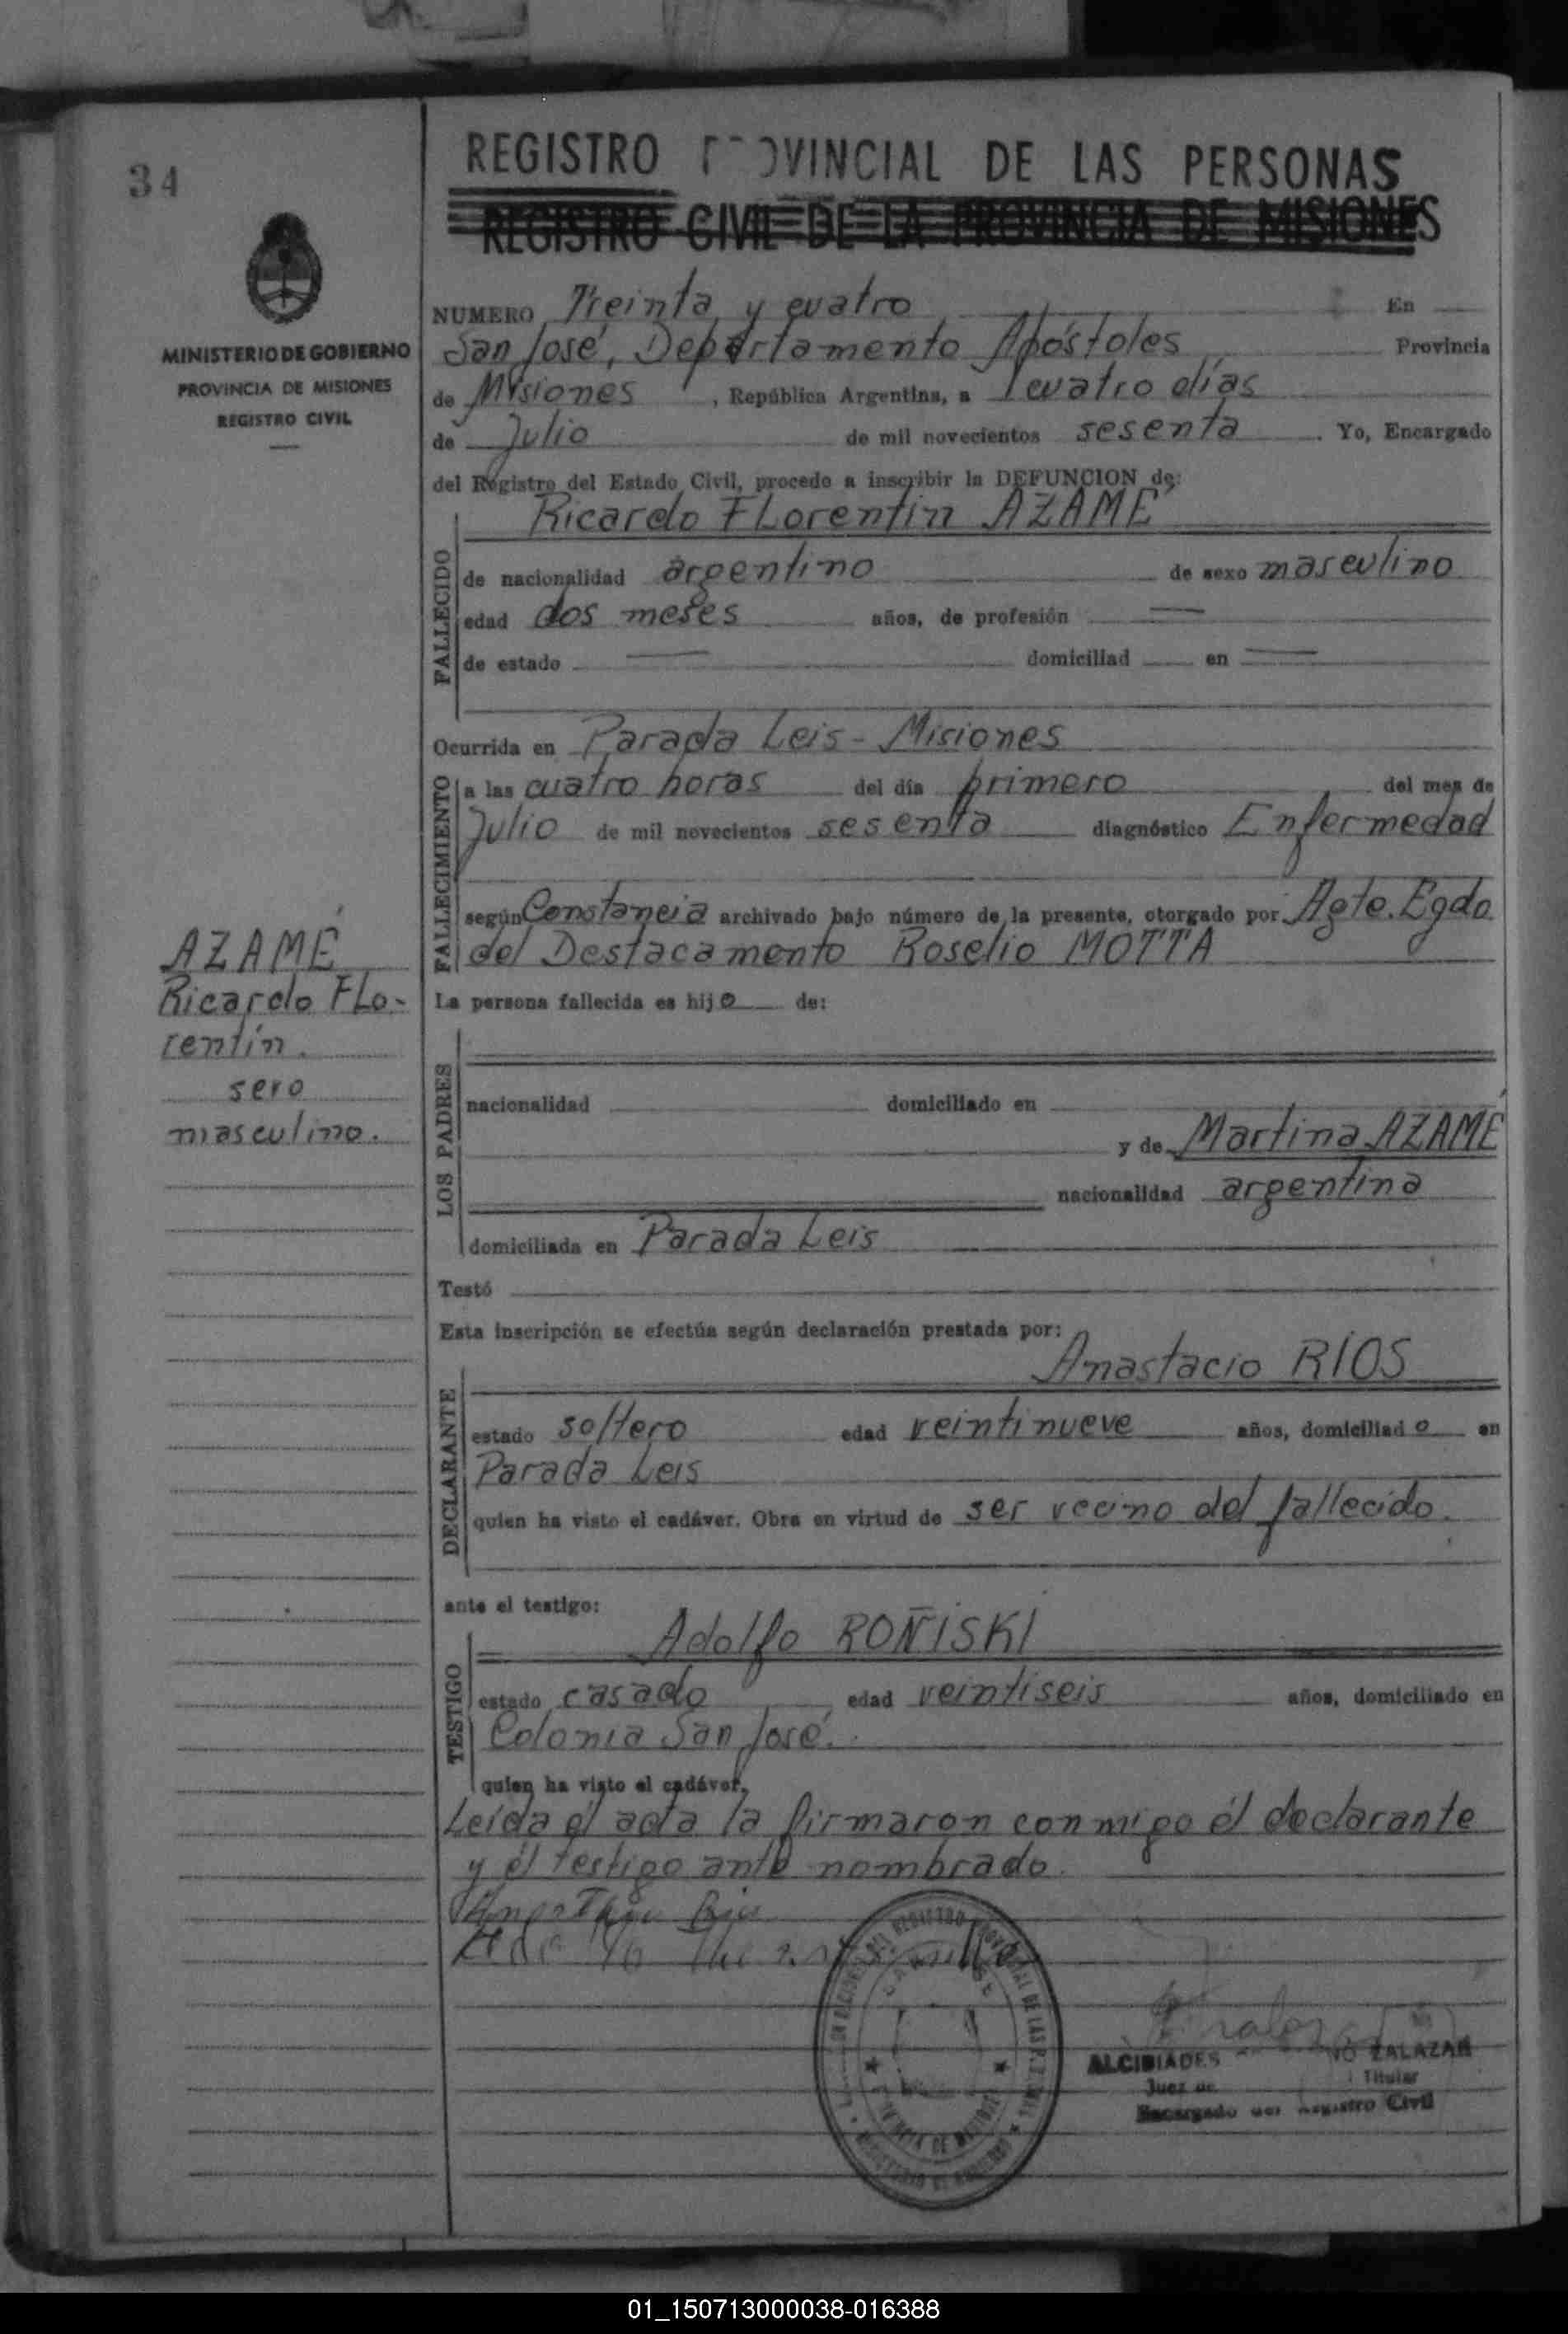 34
MINISTERIO DE GOBIERNO
PROVINCIA DE MISIONES
REGISTRO CIVIL
AZAMÉ
Ricardo FLo-
rentín.
sexo
masculino.
REGISTRO PROVINCIAL DE LAS PERSONAS
REGISTRO CIVIL DE LA PROVINCIA DE MISIONES
NUMERO Treinta y cuatro En
San José, Departamento Apóstoles Provincia
de Misiones, República Argentina, a cuatro días
de Julio de mil novecientos sesenta. Yo, Encargado
del Registro del Estado Civil, procedo a inscribir la DEFUNCION de:
Ricardo FLorentín AZAMÉ
FALLECIDO
de nacionalidad argentino de sexo masculino
edad dos meses años, de profesión —
de estado — domiciliad en —
Ocurrida en Parada Leis - Misiones
FALLECIMIENTO
a las cuatro horas del día primero del mes de
Julio de mil novecientos sesenta diagnóstico Enfermedad
según Constancia archivado bajo número de la presente, otorgado por Agte. Egdo.
del Destacamento Roselio MOTTA
La persona fallecida es hijo de:
LOS PADRES
nacionalidad domiciliado en
y de Martina AZAMÉ
nacionalidad argentina
domiciliada en Parada Leis
Testó
Esta inscripción se efectúa según declaración prestada por:
Anastacio RÍOS
DECLARANTE
estado soltero edad veintinueve años, domiciliado en
Parada Leis
quien ha visto el cadáver. Obra en virtud de ser vecino del fallecido.
ante el testigo:
Adolfo ROÑISKI
TESTIGO
estado casado edad veintiseis años, domiciliado en
Colonia San José.
quien ha visto el cadáver,
Leída el acta la firmaron conmigo él declarante
y él testigo ante nombrado.
ALCIBIADES ZALAZAR
Juez de Titular
Encargado del Registro Civil
01_150713000038-016388